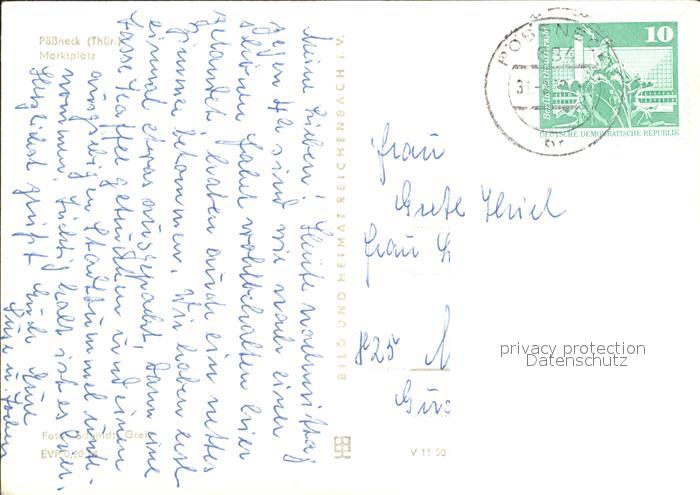 Pößneck (Thür.)
Marktplatz
Meine Lieben! Heute nachmittag
gegen ½2 sind wir nach einer
schönen Fahrt wohlbehalten hier
gelandet, haben auch ein nettes
Zimmer bekommen. Wir haben erst
einmal etwas ausgepackt, dann eine
Tasse Kaffee getrunken und einen
ausgiebigen Stadtbummel unter-
nommen. Tüchtig kalt ist es hier.
Herzlichst grüßt Euch Eure
Foto: Schmidt, Greiz
EVP 0,20
BILD UND HEIMAT REICHENBACH I. V.
V 11 50
PÖSSNECK
10
DEUTSCHE DEMOKRATISCHE REPUBLIK
Frau
Grete Thiel
Frau
825
privacy protection
Datenschutz